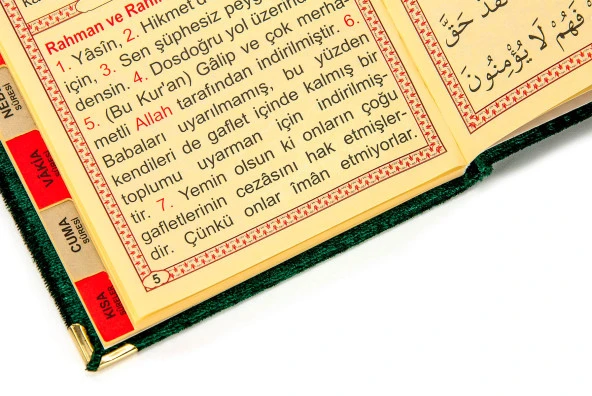 Rahman ve Rahîm
1. Yâsîn, 2. Hikmet
için, 3. Sen şüphesiz
densin. 4. Dosdoğru yol üzerinde
5. (Bu Kur'an) Gâlip ve çok merha-
metli Allah tarafından indirilmiştir. 6.
Babaları uyarılmamış, bu yüzden
kendileri de gaflet içinde kalmış bir
toplumu uyarman için indirilmiş-
tir. 7. Yemin olsun ki onların çoğu
gafletlerinin cezâsını hak etmişler-
dir. Çünkü onlar îmân etmiyorlar.
5
حَقَّ
فَهُمْ لَا يُؤْمِنُونَ
SÛRESİ
VÂKIA
SÛRESİ
CUMA
SÛRESİ
KISA
SÛRELER